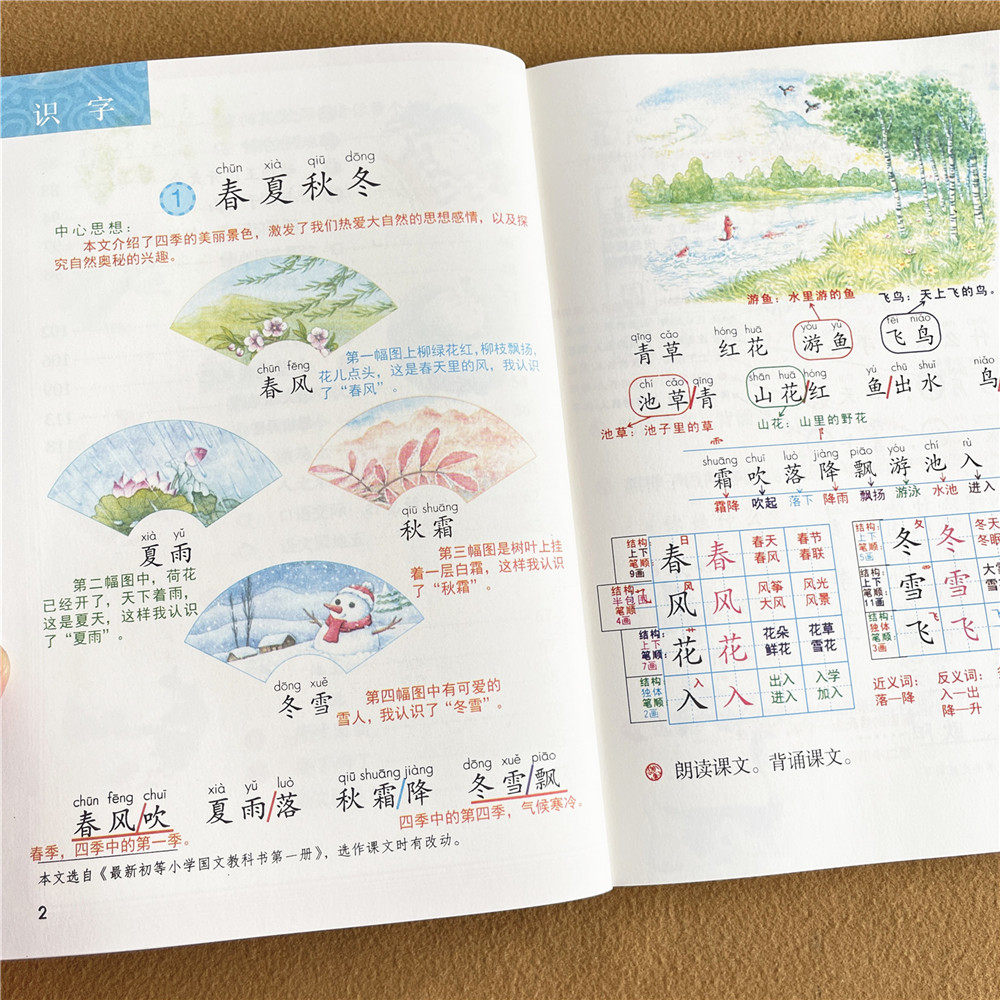 识字
chūn xià qiū dōng
1 春夏秋冬
中心思想:
本文介绍了四季的美丽景色,激发了我们热爱大自然的思想感情,以及探
究自然奥秘的兴趣。
chūn fēng
春风
第一幅图上柳绿花红,柳枝飘扬,
花儿点头,这是春天里的风,我认识
了“春风”。
xià yǔ
夏雨
第二幅图中,荷花
已经开了,天下着雨,
这是夏天,这样我认识
了“夏雨”。
qiū shuāng
秋霜
第三幅图是树叶上挂
着一层白霜,这样我认识
了“秋霜”。
dōng xuě
冬雪
第四幅图中有可爱的
雪人,我认识了“冬雪”。
chūn fēng chuī xià yǔ luò qiū shuāng jiàng dōng xuě piāo
春风/吹 夏雨/落 秋霜/降 冬雪/飘
春季,四季中的第一季。
四季中的第四季,气候寒冷。
本文选自《最新初等小学国文教科书第一册》,选作课文时有改动。
2
游鱼:水里游的鱼 飞鸟:天上飞的鸟。
qīng cǎo hóng huā yóu yú fēi niǎo
青草 红花 游鱼 飞鸟
chí cǎo qīng shān huā hóng yú chū shuǐ niǎo
池草/青 山花/红 鱼/出水 鸟/
池草:池子里的草
山花:山里的野花
shuāng chuī luò jiàng piāo yóu chí rù
霜 吹 落 降 飘 游 池 入
霜降 吹起 落下 降雨 飘扬 游泳 水池 进入
结构:上下 笔顺:9画 春 日 春 春天 春节 春风 春联
结构:半包围 笔顺:4画 风 风 风筝 风光 大风 风景
结构:上下 笔顺:7画 花 艹 花 花朵 花草 鲜花 雪花
结构:独体 笔顺:2画 入 入 入 出入 入学 进入 加入
结构:上下 笔顺:5画 冬 夂 冬 冬天 冬眠
结构:上下 笔顺:11画 雪 雪
结构:独体 笔顺:3画 飞 飞 飞
近义词: 反义词:
落—降 入—出
降—升
朗读课文。背诵课文。